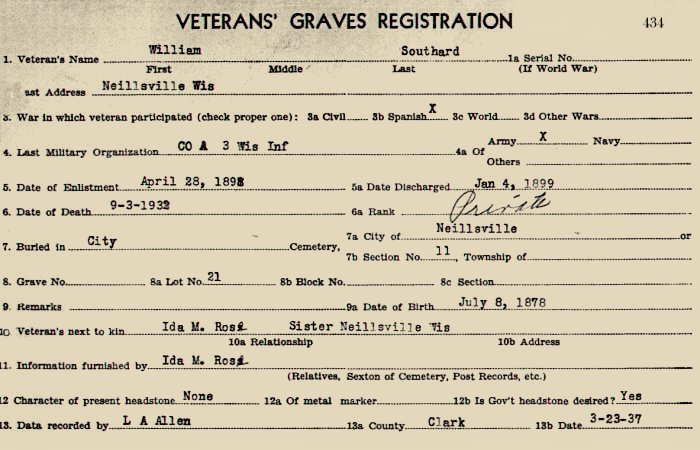 VETERANS' GRAVES REGISTRATION 434
1. Veteran's Name William Southard 1a Serial No.
First Middle Last (If World War)
ast Address Neillsville Wis
3. War in which veteran participated (check proper one): 3a Civil 3b Spanish X 3c World 3d Other Wars
4. Last Military Organization CO A 3 Wis Inf 4a Of Army X Navy
Others
5. Date of Enlistment April 28, 1898 5a Date Discharged Jan 4, 1899
6. Date of Death 9-3-1932 6a Rank Private
7. Buried in City Cemetery, 7a City of Neillsville or
7b Section No. 11, Township of
8. Grave No. 8a Lot No. 21 8b Block No. 8c Section
9. Remarks 9a Date of Birth July 8, 1878
10 Veteran's next to kin Ida M. Sister Neillsville Wis
10a Relationship 10b Address
11. Information furnished by Ida M.
(Relatives, Sexton of Cemetery, Post Records, etc.)
12 Character of present headstone None 12a Of metal marker 12b Is Gov't headstone desired? Yes
13. Data recorded by L A Allen 13a County Clark 13b Date 3-23-37